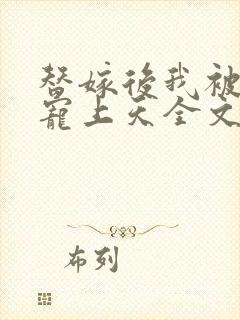 替嫁後我被
寵上天全文
布列